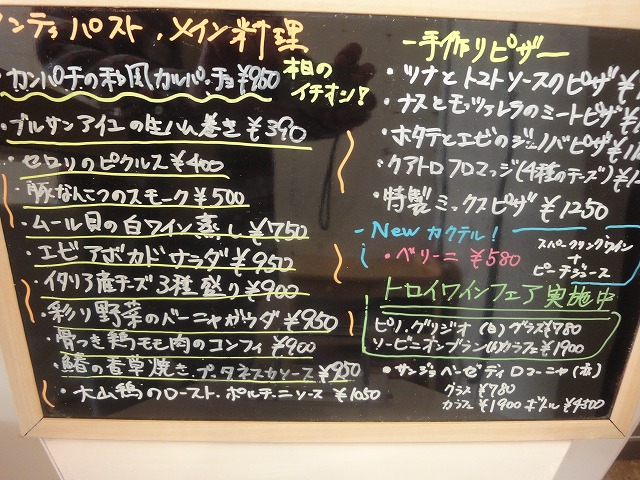 ンティパスト、メイン料理
・カンパチの和風カルパッチョ ¥950
本日の
イチオシ!
・ブルサンアイユの生ハム巻き ¥390
・セロリのピクルス ¥400
・豚なんこつのスモーク ¥500
・ムール貝の白ワイン蒸し ¥750
・エビアボカドサラダ ¥950
・イタリア産チーズ3種盛り ¥900
・彩り野菜のバーニャカウダ ¥950
・骨つき鶏モモ肉のコンフィ ¥900
・鯖の香草焼き プッタネスカソース ¥950
・大山鶏のロースト、ポルチーニソース ¥1050
ー手作りピザー
・ツナとトマトソースのピザ
・ナスとモッツァレラのミートピザ
・ホタテとエビのジェノバピザ
・クアトロフロマッジ(4種のチーズ)
・特製ミックスピザ ¥1250
- New カクテル!
・ベリーニ ¥580
スパークリングワイン
+
ピーチジュース
トロイワインフェア実施中
ピノ・グリジオ(白)グラス¥780
ソービニオンブラン(白)カラフェ¥1900
・サンジョベーゼディロマーニャ(赤)
グラス ¥780
カラフェ ¥1900 ボトル ¥4500